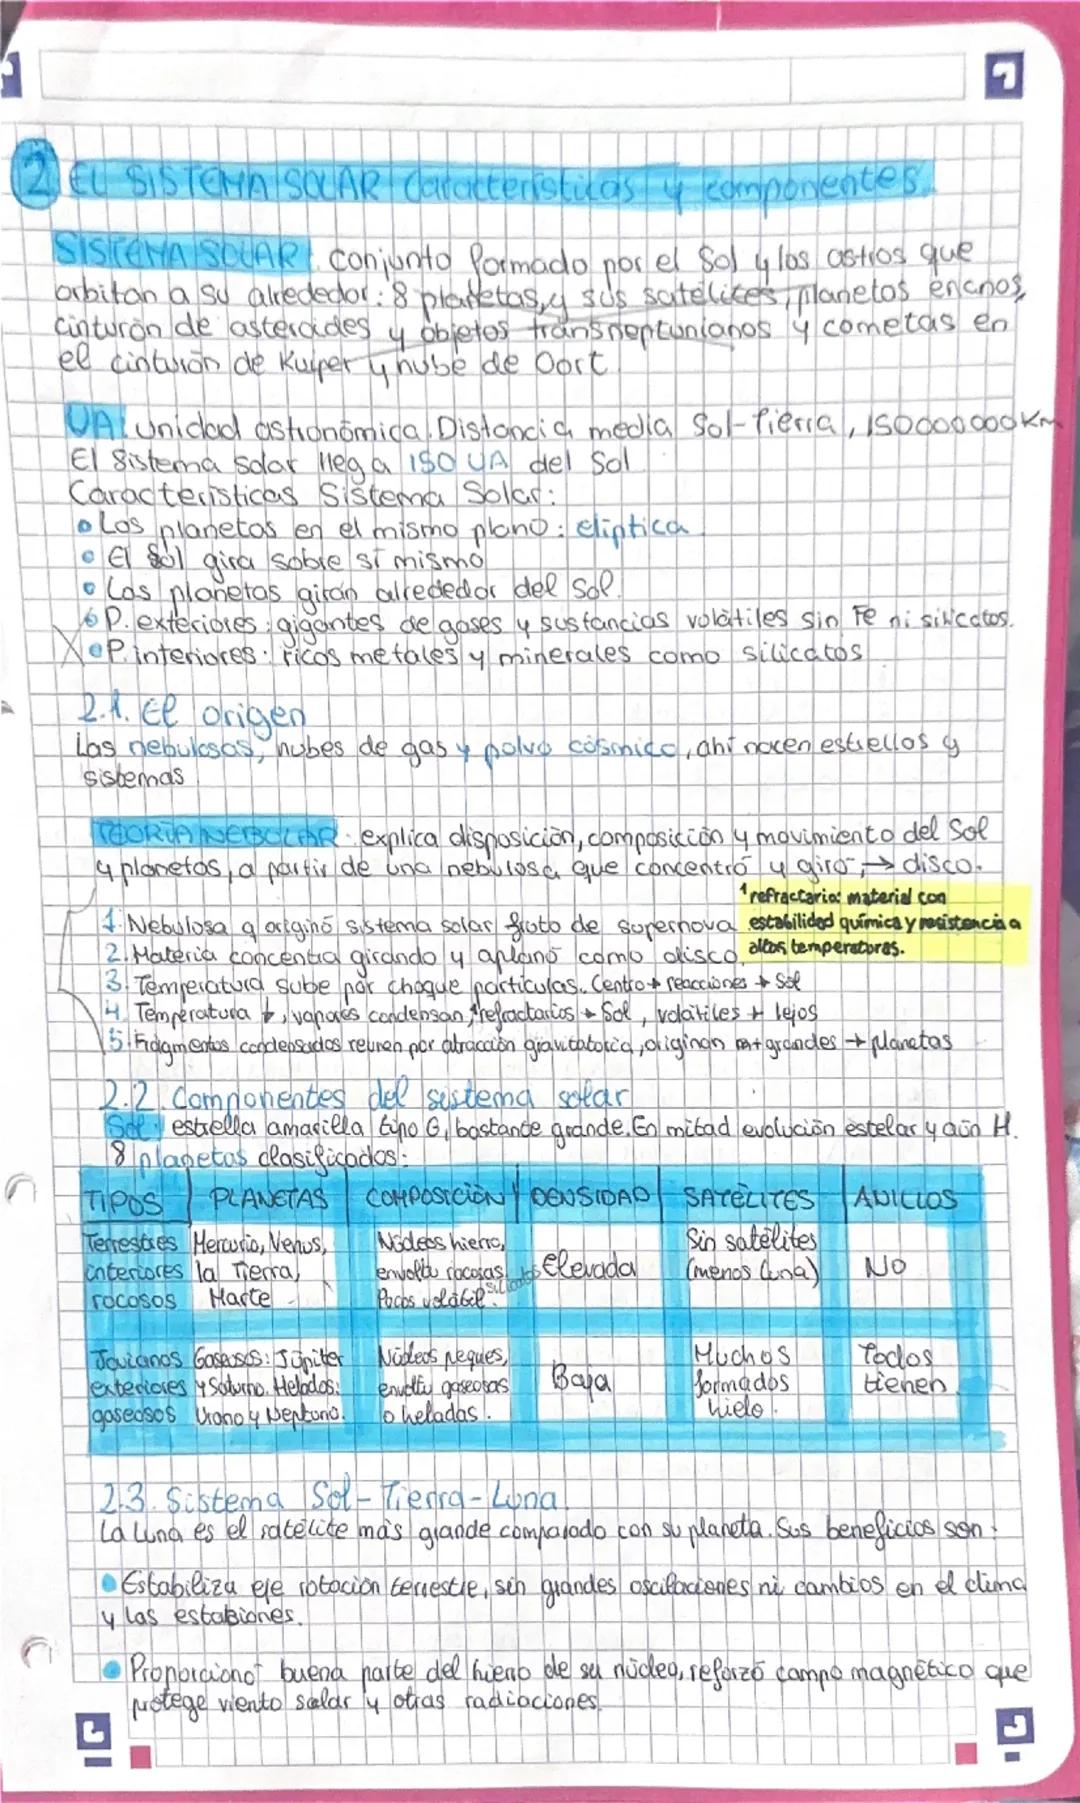 2 EL SISTEMA SOLAR Características y componentes.
SISTEMA SOLAR: conjunto formado por el Sol y los astros que
orbitan a su alrededor: 8 planetas, y sus satélites, planetas enanos,
cinturón de asteroides y objetos transneptunianos y cometas en
el cinturón de Kuiper y nube de Oort.
UA: unidad astronómica. Distancia media Sol-Tierra, 150000000Km
El sistema solar llega 150 UA del Sol
Características Sistema Solar:
• Los planetas en el mismo plano: elíptica.
• El Sol gira sobre sí mismo
• Los planetas girán alrededor del Sol.
• P. exteriores: gigantes de gases y sustancias volátiles sin Fe ni silicatos.
• P. interiores: ricos metales y minerales como silicatos
2.1. El origen
Las nebulosas, nubes de gas y polvo cósmico, ahí nacen estrellas y
sistemas
TEORÍA NEBULAR: explica disposición, composición y movimiento del Sol
y planetas, a partir de una nebulosa que concentró y giró, → disco.
1 refractario: material con
estabilidad química y resistencia a
altas temperaturas.
1. Nebulosa q originó sistema solar fruto de supernova
2. Materia concentra girando y aplanó como disco.
3. Temperatura sube por choque partículas. Centro → reacciones → Sol
4. Temperatura ↓, vapores condensan, 1refractarios → Sol, volátiles → lejos
5. Fragmentos condensados reunen por atracción gravitatoria, originan m+ grandes → planetas
2.2. Componentes del sistema solar
Sol: estrella amarilla tipo G, bastante grande. En mitad evolución estelar y aún H.
8 planetas clasificados:
TIPOS PLANETAS COMPOSICIÓN DENSIDAD SATÉLITES ANILLOS
Terrestres interiores rocosos
Mercurio, Venus, la Tierra, Marte
Núcleos hierro, envolty rocosas silicatos. Pocos volátil.
Elevada
Sin satélites (menos Luna)
No
Jovianos exteriores gaseosos
Gaseosos: Júpiter y Saturno. Helados: Urano y Neptuno.
Núcleos peques, envolty gaseosas o heladas.
Baja
Muchos formados hielo.
Todos tienen
2.3. Sistema Sol-Tierra-Luna.
La Luna es el satélite más grande comparado con su planeta. Sus beneficios son:
• Estabiliza eje rotación terrestre, sin grandes oscilaciones ni cambios en el clima
y las estaciones.
• Proporcionó buena parte del hierro de su núcleo, reforzó campo magnético que
protege viento solar y otras radiaciones.